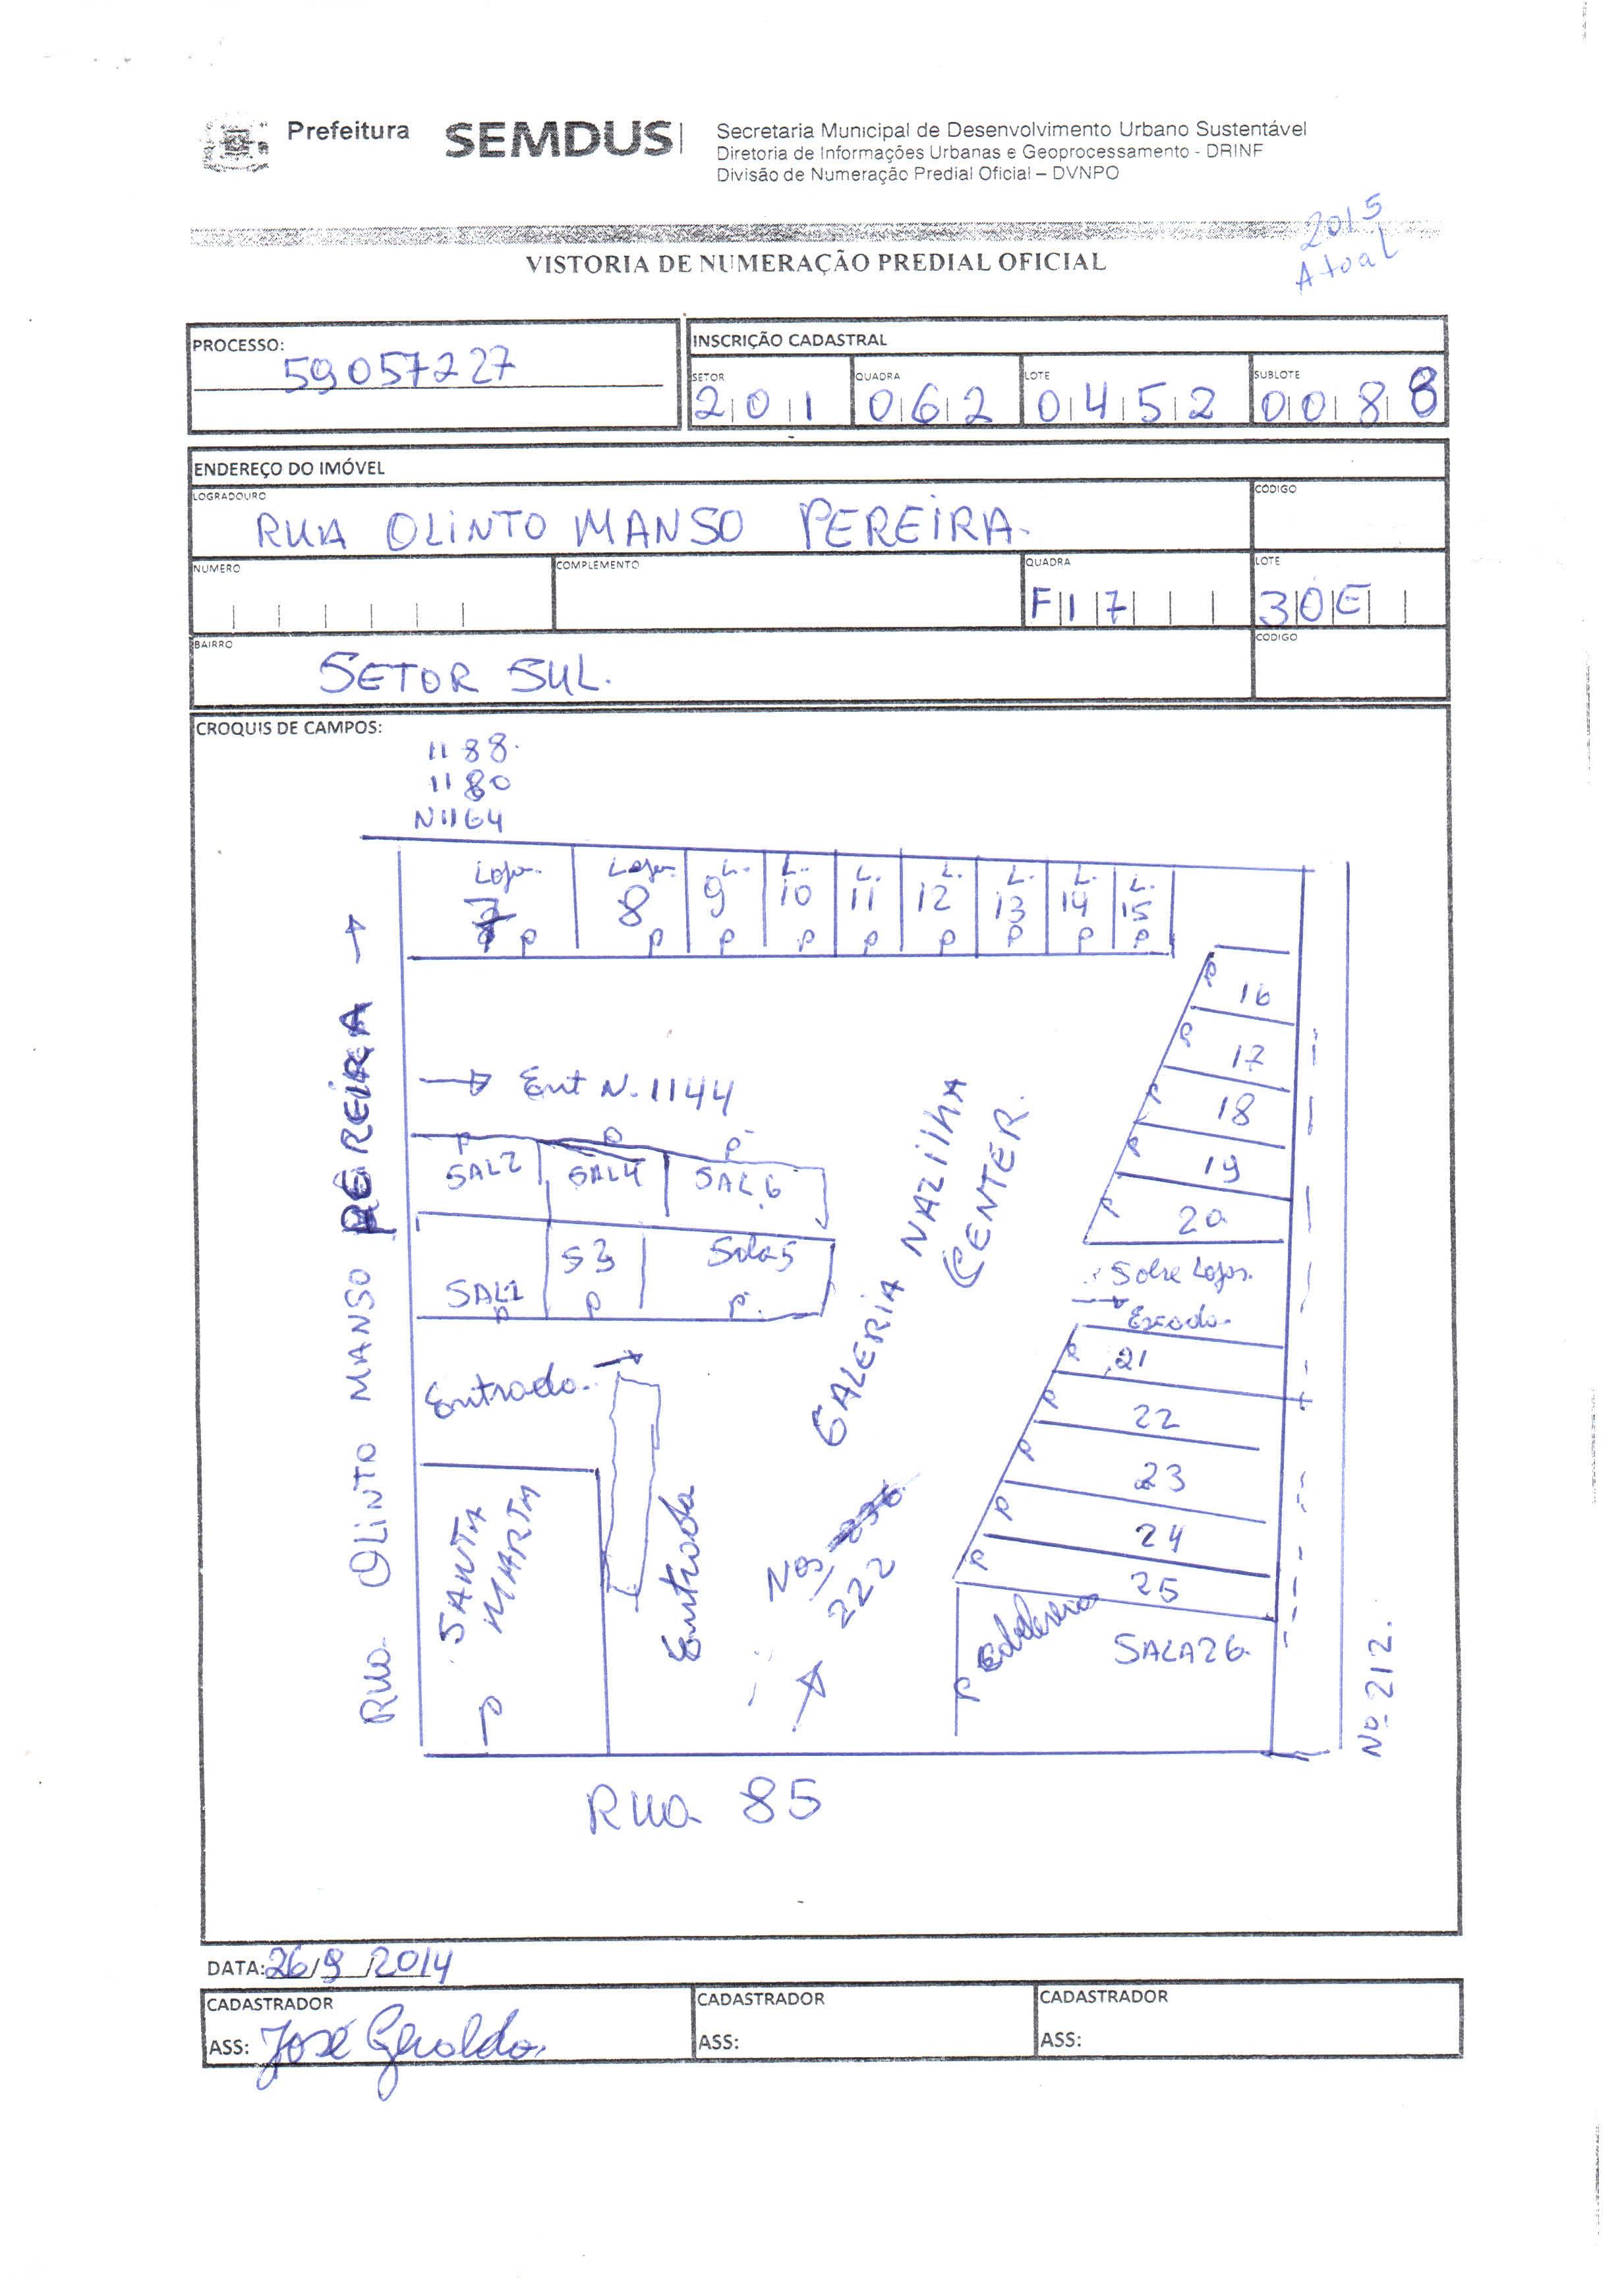 Prefeitura SEMDUS
Secretaria Municipal de Desenvolvimento Urbano Sustentável
Diretoria de Informações Urbanas e Geoprocessamento - DRINF
Divisão de Numeração Predial Oficial – DVNPO
2015
Atual
VISTORIA DE NUMERAÇÃO PREDIAL OFICIAL
PROCESSO:
59057227
INSCRIÇÃO CADASTRAL
SETOR QUADRA LOTE SUBLOTE
201 062 0452 0088
ENDEREÇO DO IMÓVEL
LOGRADOURO CÓDIGO
RUA OLINTO MANSO PEREIRA.
NUMERO COMPLEMENTO QUADRA LOTE
F17 30E
BAIRRO CODIGO
SETOR SUL.
CROQUIS DE CAMPOS:
1188.
1180
N1164
Loja Loja L. L. L. L. L. L. L.
7 8 9 10 11 12 13 14 15
P P P P P P P P P
P 16
P 17
P 18
P 19
P 20
Ent N. 1144
P P P
SAL2 SAL4 SAL6
SAL1 S3 Sala5
P P P.
Sobre Lojas.
Escada.
P 21
P 22
P 23
P 24
P 25
Entrada.
Entrada
GALERIA NAZILHA
CENTER.
SANTA
MARTA
P
Nos 236
222
P
SALA26.
Nº 212.
RUA OLINTO MANSO PEREIRA
Rua 85
DATA: 26/9/2014
CADASTRADOR CADASTRADOR CADASTRADOR
ASS: José Geraldo. ASS: ASS: